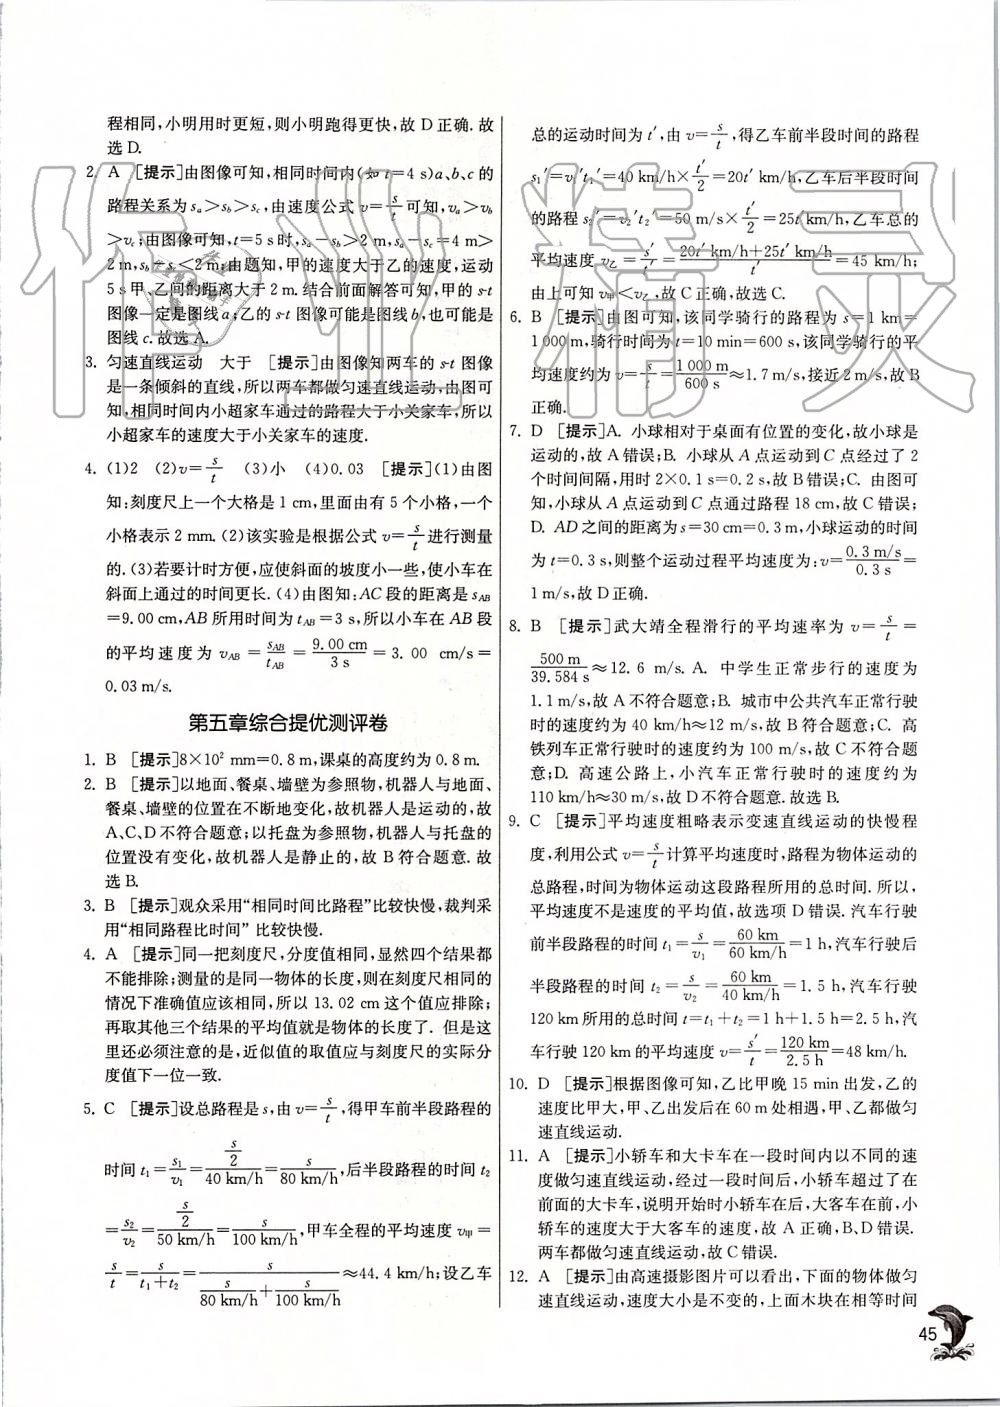 程相同,小明用时更短,则小明跑得更快,故 D 正确. 故
选 D.
2. A [提示]由图像可知,相同时间内(如 t=4 s)a、b、c 的
路程关系为 sa>sb>sc,由速度公式 v=s/t可知,va>vb
>vc;由图像可知,t=5 s时,sa-sb>2 m,sa-sc=4 m>
2 m,sb-sc<2 m;由题知,甲的速度大于乙的速度,运动
5 s 甲、乙间的距离大于 2 m. 结合前面解答可知,甲的 s-t
图像一定是图线 a;乙的 s-t 图像可能是图线 b,也可能是
图线 c. 故选 A.
3. 匀速直线运动 大于 [提示]由图像知两车的 s-t 图像
是一条倾斜的直线,所以两车都做匀速直线运动,由图可
知,相同时间内小超家车通过的路程大于小关家车,所以
小超家车的速度大于小关家车的速度.
4. (1)2 (2)v=s/t (3)小 (4)0.03 [提示](1)由图
知:刻度尺上一个大格是 1 cm,里面由有 5 个小格,一个
小格表示 2 mm. (2)该实验是根据公式 v=s/t进行测量
的. (3)若要计时方便,应使斜面的坡度小一些,使小车在
斜面上通过的时间更长. (4)由图知:AC 段的距离是 sAB
=9.00 cm,AB 所用时间为 tAB=3 s,所以小车在 AB 段
的平均速度为 vAB=sAB/tAB=9.00 cm/3 s=3.00 cm/s=
0.03 m/s.
第五章综合提优测评卷
1. B [提示]8×10² mm=0.8 m,课桌的高度约为 0.8 m.
2. B [提示]以地面、餐桌、墙壁为参照物,机器人与地面、
餐桌、墙壁的位置在不断地变化,故机器人是运动的,故
A、C、D 不符合题意;以托盘为参照物,机器人与托盘的
位置没有变化,故机器人是静止的,故 B 符合题意. 故
选 B.
3. B [提示]观众采用“相同时间比路程”比较快慢,裁判采
用“相同路程比时间” 比较快慢.
4. A [提示]同一把刻度尺,分度值相同,显然四个结果都
不能排除;测量的是同一物体的长度,则在刻度尺相同的
情况下准确值应该相同,所以 13.02 cm 这个值应排除;
再取其他三个结果的平均值就是物体的长度了. 但是这
里还必须注意的是,近似值的取值应与刻度尺的实际分
度值下一位一致.
5. C [提示]设总路程是 s,由 v=s/t,得甲车前半段路程的
时间 t₁=s₁/v₁=(s/2)/(40 km/h)=s/(80 km/h),后半段路程的时间 t₂
=s₂/v₂=(s/2)/(50 km/h)=s/(100 km/h),甲车全程的平均速度 v甲=
s/t=s/(t₁+t₂)=s/(s/(80 km/h)+s/(100 km/h))≈44.4 km/h;设乙车
总的运动时间为 t′,由 v=s/t,得乙车前半段时间的路程
s₁′=v₁′t₁′=40 km/h×t′/2=20t′ km/h,乙车后半段时间
的路程 s₂′=v₂′t₂′=50 m/s×t′/2=25t′ km/h,乙车总的
平均速度 v乙=s′/t′=(20t′ km/h+25t′ km/h)/t′=45 km/h;
由上可知 v甲<v乙,故 C 正确,故选 C.
6. B [提示]由图可知,该同学骑行的路程为 s=1 km=
1 000 m,骑行时间为 t=10 min=600 s,该同学骑行的平
均速度约为 v=s/t=1 000 m/600 s≈1.7 m/s,接近 2 m/s,故 B
正确.
7. D [提示]A. 小球相对于桌面有位置的变化,故小球是
运动的,故 A 错误;B. 小球从 A 点运动到 C 点经过了 2
个时间间隔,用时 2×0.1 s=0.2 s,故 B 错误;C. 由图可
知,小球从 A 点运动到 C 点通过路程 18 cm,故 C 错误;
D. AD 之间的距离为 s=30 cm=0.3 m,小球运动的时间
为 t=0.3 s,则整个运动过程平均速度为:v=0.3 m/s/0.3 s=
1 m/s,故 D 正确.
8. B [提示]武大靖全程滑行的平均速率为 v=s/t=
500 m/39.584 s≈12.6 m/s. A. 中学生正常步行的速度为
1.1 m/s,故 A 不符合题意;B. 城市中公共汽车正常行驶
时的速度约为 40 km/h≈12 m/s,故 B 符合题意;C. 高
铁列车正常行驶时的速度约为 100 m/s,故 C 不符合题
意;D. 高速公路上,小汽车正常行驶时的速度约为
110 km/h≈30 m/s,故 D 不符合题意. 故选 B.
9. C [提示]平均速度粗略表示变速直线运动的快慢程
度,利用公式 v=s/t计算平均速度时,路程为物体运动的
总路程,时间为物体运动这段路程所用的总时间. 所以,
平均速度不是速度的平均值,故选项 D 错误. 汽车行驶
前半段路程的时间 t₁=s/v₁=60 km/(60 km/h)=1 h,汽车行驶后
半段路程的时间 t₂=s/v₂=60 km/(40 km/h)=1.5 h,汽车行驶
120 km 所用的总时间 t=t₁+t₂=1 h+1.5 h=2.5 h,汽
车行驶 120 km 的平均速度 v=s′/t=120 km/2.5 h=48 km/h.
10. D [提示]根据图像可知,乙比甲晚 15 min 出发,乙的
速度比甲大,甲、乙出发后在 60 m 处相遇,甲、乙都做匀
速直线运动.
11. A [提示]小轿车和大卡车在一段时间内以不同的速
度做匀速直线运动,经过一段时间后,小轿车超过了在
前面的大卡车,说明开始时小轿车在后,大客车在前,小
轿车的速度大于大客车的速度,故 A 正确,B、D 错误.
两车都做匀速直线运动,故 C 错误.
12. A [提示]由高速摄影图片可以看出,下面的物体做匀
速直线运动,速度大小是不变的,上面木块在相等时间
45
作业精灵